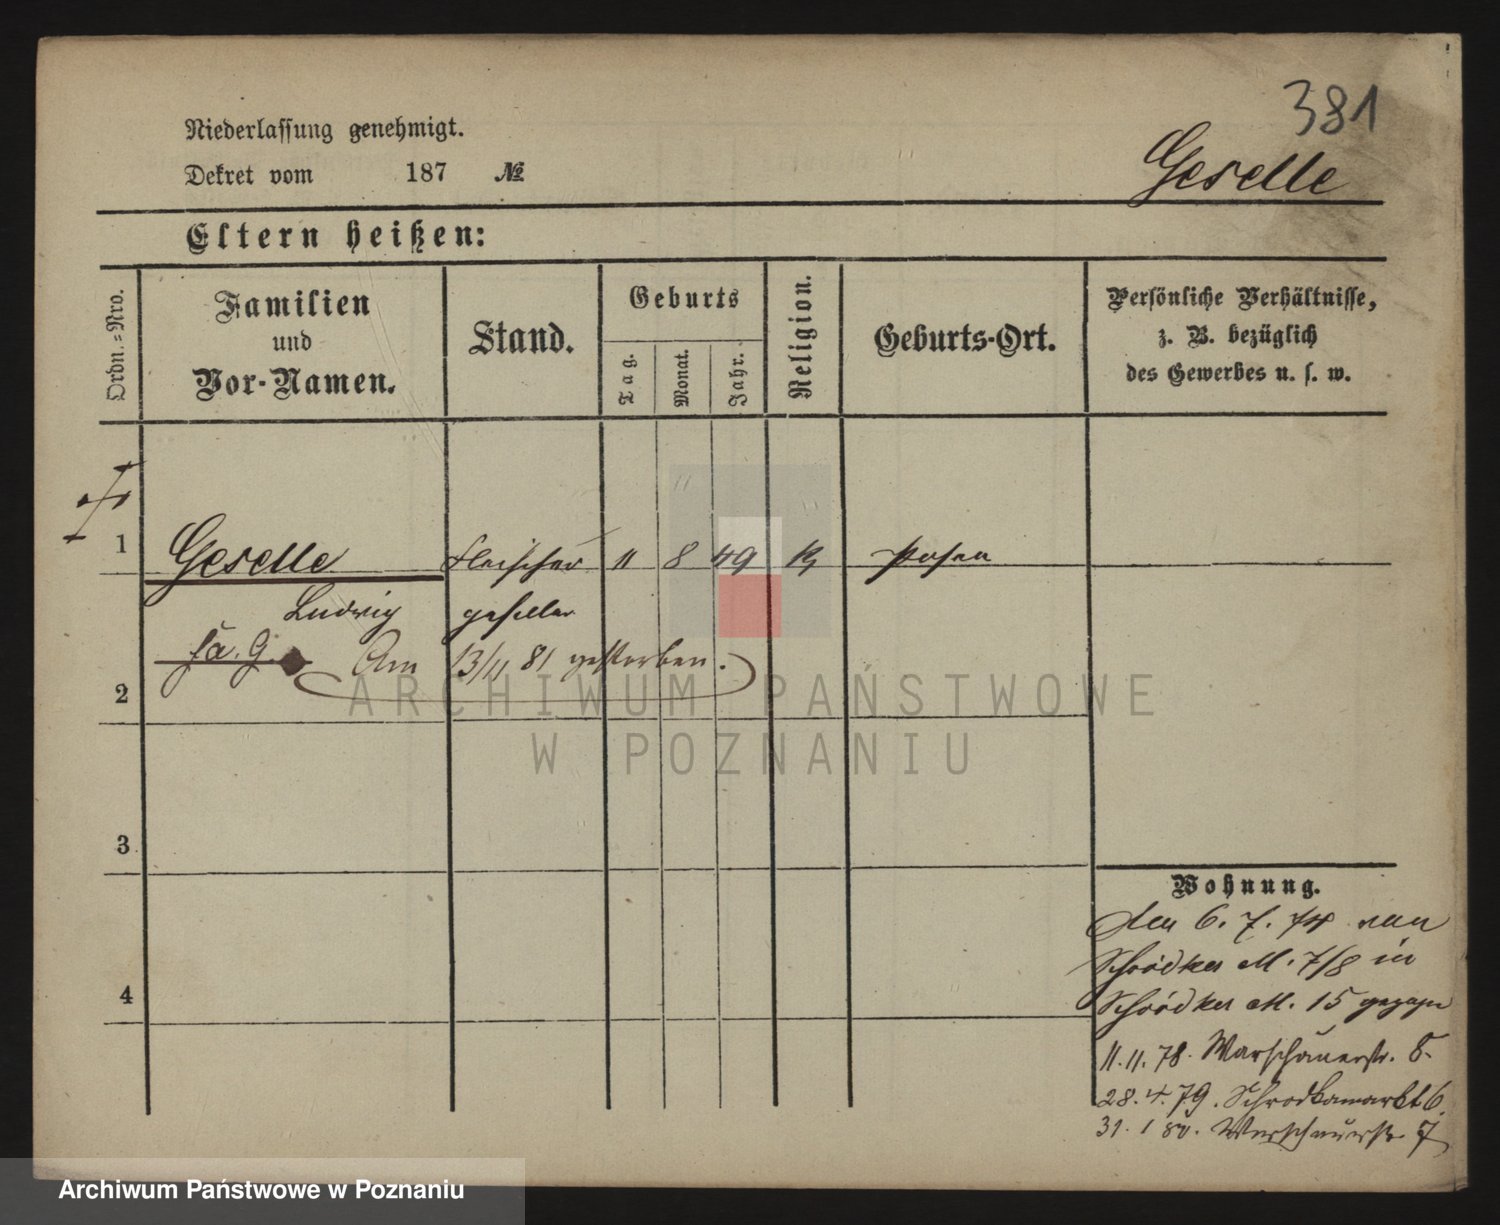 381
Niederlassung genehmigt.
Dekret vom 187 №
Geselle
Eltern heißen:
Ordn.=Nro.
Familien
und
Vor-Namen.
Stand.
Geburts
Tag.
Monat.
Jahr.
Religion.
Geburts-Ort.
Persönliche Verhältnisse,
z. B. bezüglich
des Gewerbes u. s. w.
1 Geselle Fleischer 11 8 49 K Posen
Ludwig geselle
Am 13/11 81 gestorben.
2
3
4
Wohnung.
Den 6. 7. 74 von
Schrödker M. 7/8 in
Schrödker M. 15 gezogen
11.11.78. Warschauerstr. 8.
28.4.79. Schrodkamarkt 6.
31. 1 80. Warschauerstr 7
ARCHIWUM PAŃSTWOWE
W POZNANIU
Archiwum Państwowe w Poznaniu